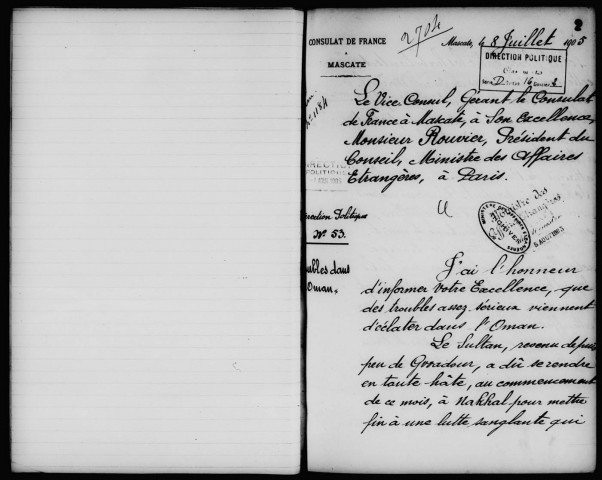 2
2704
CONSULAT DE FRANCE
à
MASCATE
Mascate, le 8 Juillet 1905
DIRECTION POLITIQUE
Le Vice Consul, Gérant le Consulat
de France à Mascate, à Son Excellence,
Monsieur Rouvier, Président du
Conseil, Ministre des Affaires
Etrangères, à Paris.
Direction Politique
N° 53.
Troubles dans
l'Oman.
J'ai l'honneur
d'informer Votre Excellence, que
des troubles assez sérieux viennent
d'éclater dans l'Oman.
Le Sultan, revenu depuis
peu de Gwadour, a dû se rendre
en toute hâte, au commencement
de ce mois, à Nakhal pour mettre
fin à une lutte sanglante qui